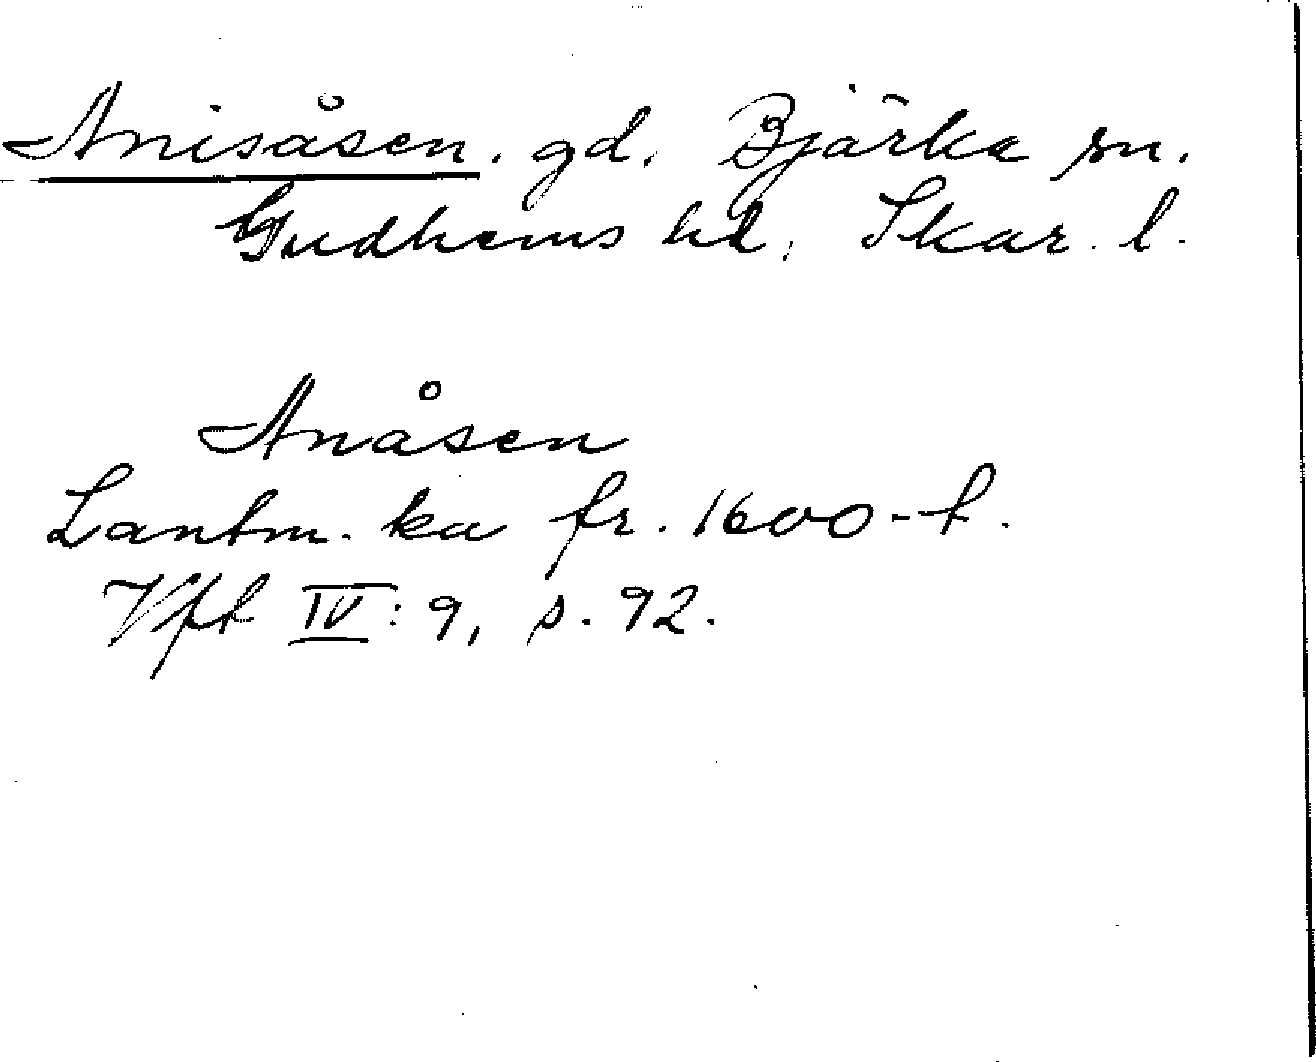 Anisåsen. gd. Bjärka sn.
Gudhems hd. Skar. l.
Anåsen
Lantm. ka fr. 1600-t.
Vft IV: 9, s. 92.